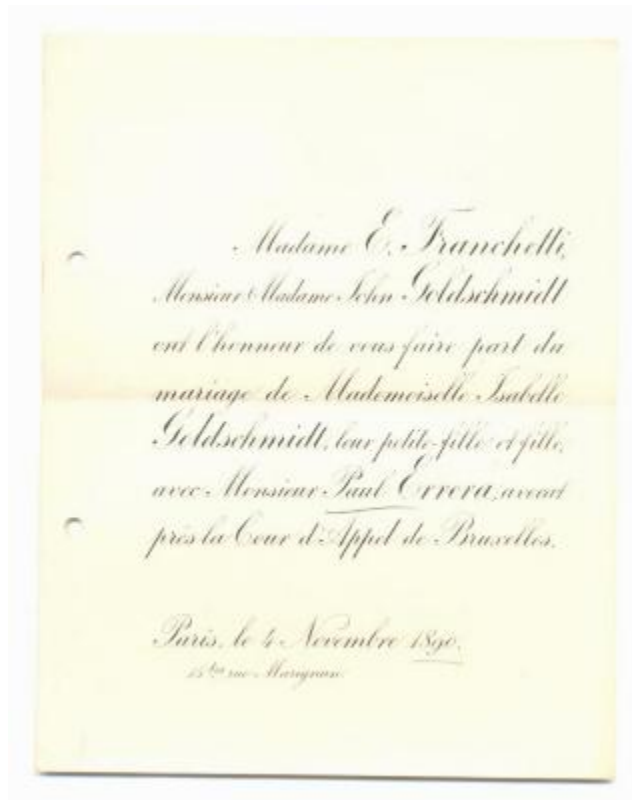 Madame E. Franchetti,
Monsieur & Madame John Goldschmidt
ont l'honneur de vous faire part du
mariage de Mademoiselle Isabelle
Goldschmidt, leur petite-fille et fille,
avec Monsieur Paul Errera, avocat
près la Cour d'Appel de Bruxelles.
Paris, le 4 Novembre 1890.
rue Marignan.